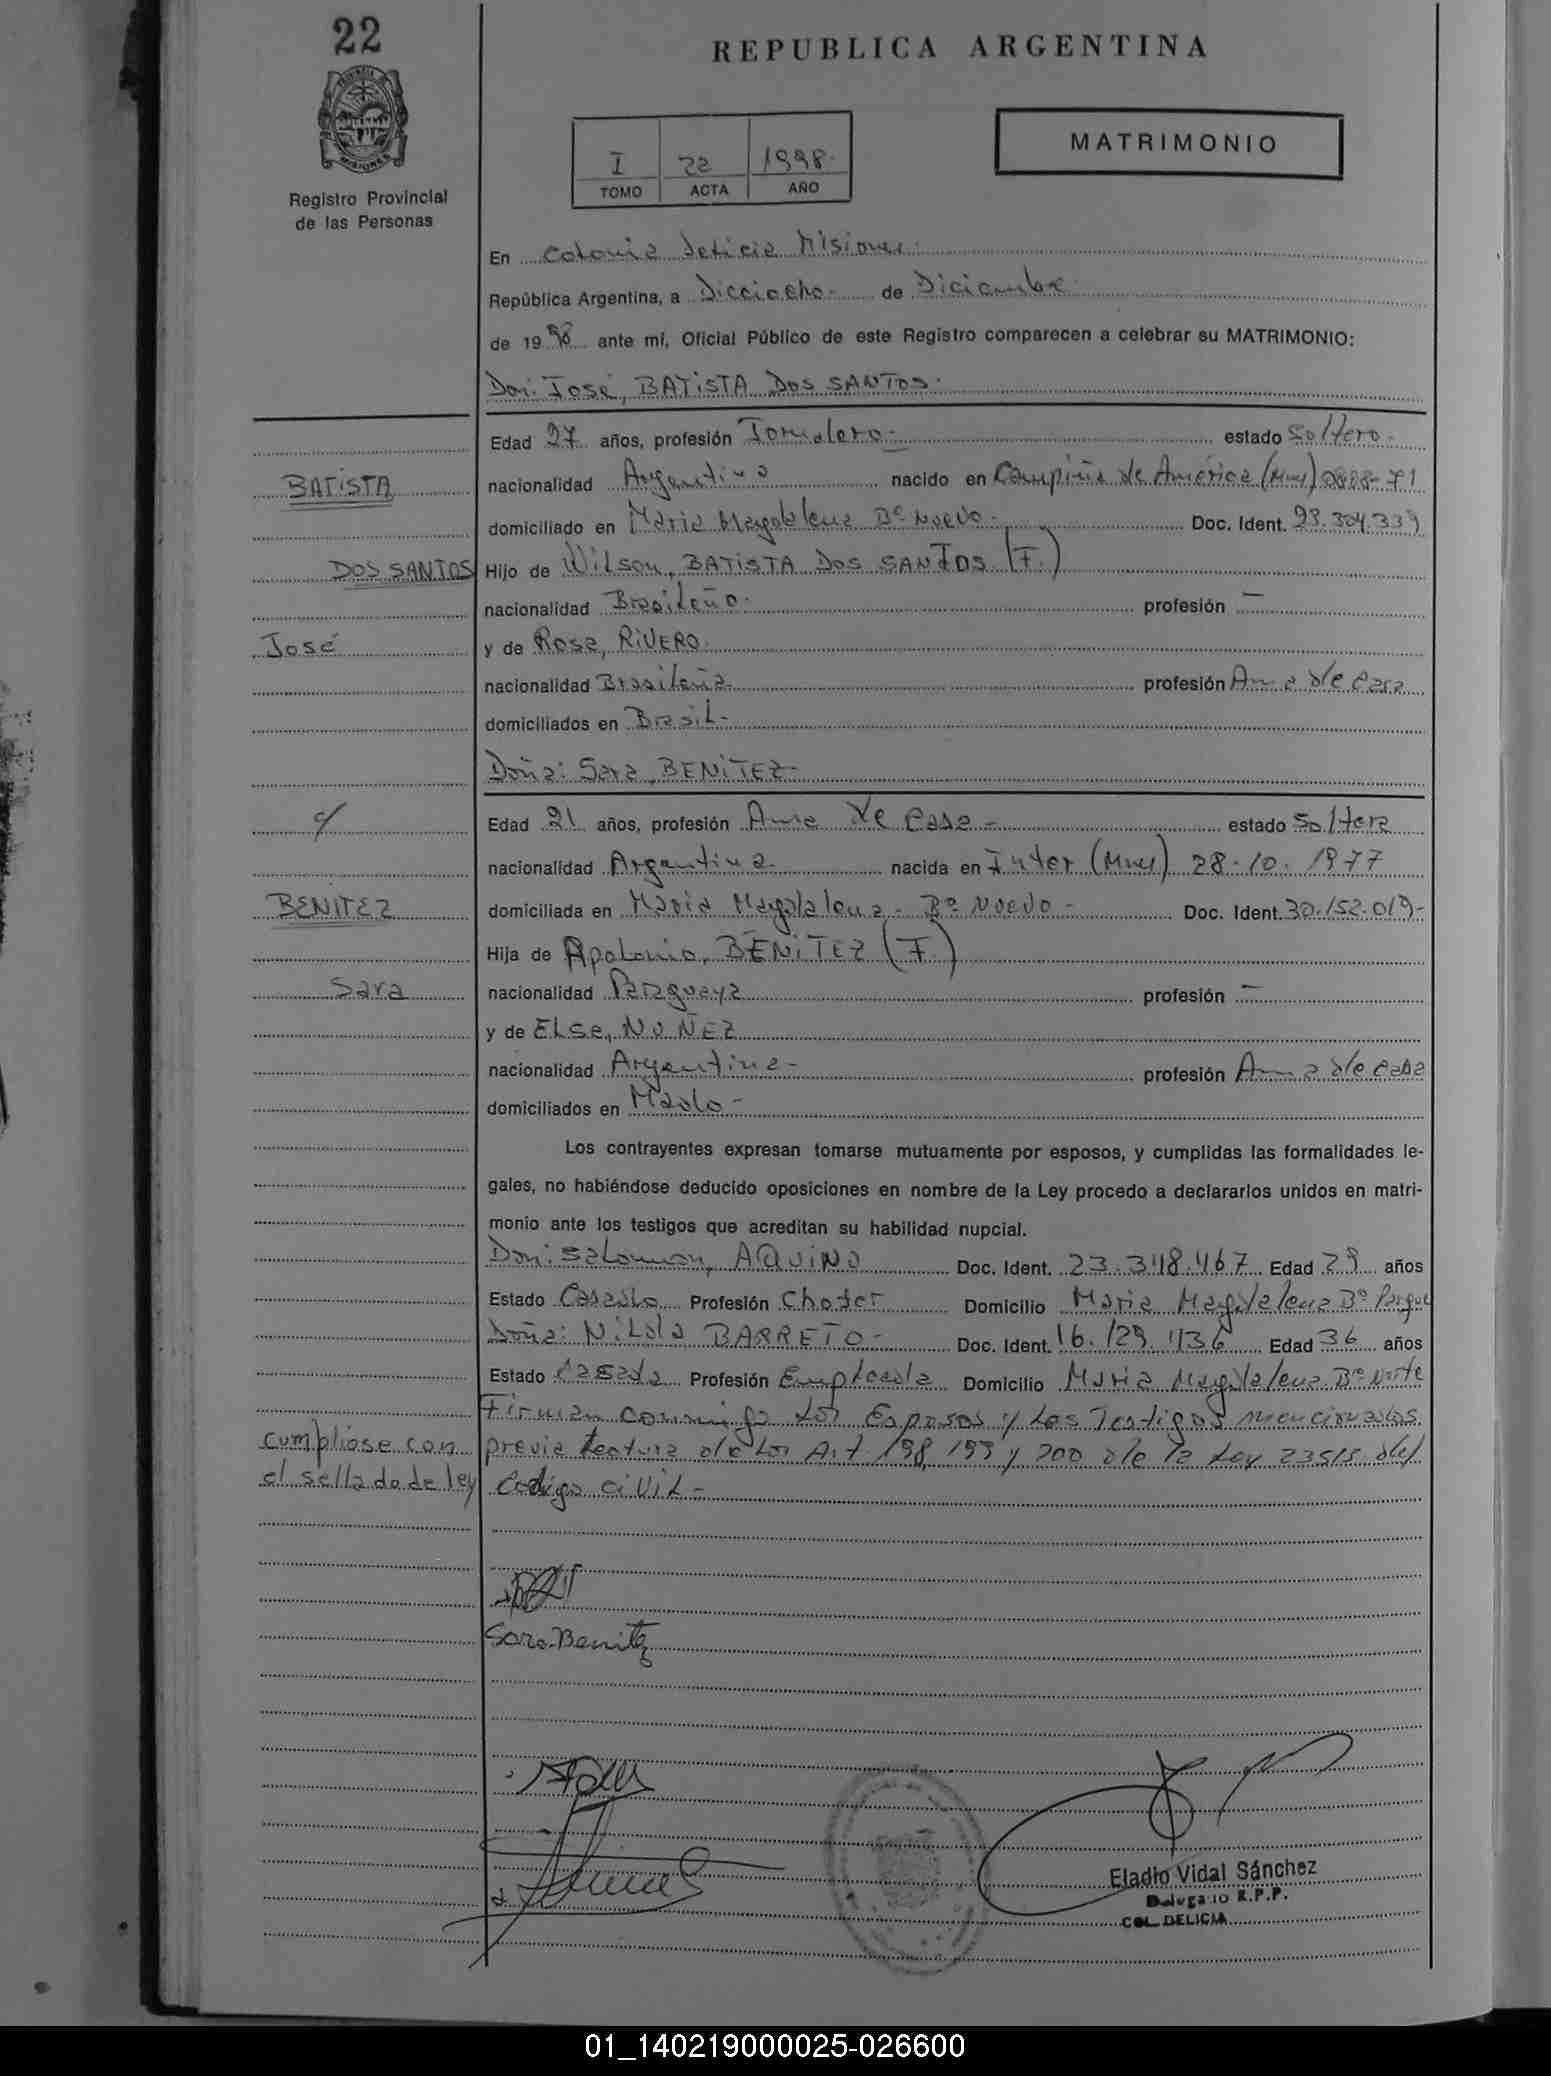 22
REPUBLICA ARGENTINA
PROVINCIA DE
MISIONES
Registro Provincial
de las Personas
I 22 1998-
TOMO ACTA AÑO
MATRIMONIO
En Colonia Delicia Misiones.
República Argentina, a Dieciocho- de Diciembre
de 1998 ante mí, Oficial Público de este Registro comparecen a celebrar su MATRIMONIO:
Don: José, BATISTA DOS SANTOS.
Edad 27 años, profesión Jornalero- estado Soltero-
nacionalidad Argentino nacido en Campiña de América (Mnes)
domiciliado en Maria Magdalena Bº Nuevo- Doc. Ident. 23.304.339
Hijo de Wilson, BATISTA DOS SANTOS (F.)
nacionalidad Brasileño. profesión —
y de Rosa, RIVERO.
nacionalidad Brasileña profesión Ama de Casa
domiciliados en Brasil-
Doña: Sara, BENITEZ-
Edad 21 años, profesión Ama de Casa- estado Soltera
nacionalidad Argentina nacida en Inter (Mnes) 28-10-1977
domiciliada en Maria Magdalena- Bº Nuevo- Doc. Ident. 30.152.019-
Hija de Apolonio, BENITEZ (F.)
nacionalidad Paraguaya profesión —
y de Elsa, NUÑEZ
nacionalidad Argentina- profesión Ama de Casa
domiciliados en Mado-
BATISTA
DOS SANTOS
José
c/
BENITEZ
Sara
Los contrayentes expresan tomarse mutuamente por esposos, y cumplidas las formalidades le-
gales, no habiéndose deducido oposiciones en nombre de la Ley procedo a declararlos unidos en matri-
monio ante los testigos que acreditan su habilidad nupcial.
Don: Salomon, AQUINO Doc. Ident. 23.348.467 Edad 29 años
Estado Casado Profesión Chofer Domicilio Maria Magdalena Bº Parque
Doña: Nilda BARRETO- Doc. Ident. 16.129.436 Edad 36 años
Estado Casada Profesión Empleada Domicilio Maria Magdalena Bº Norte
Firman conmigo los Esposos y los Testigos mencionados
previa lectura de los Art 198, 199 y 200 de la Ley 23515 del
Codigo Civil-
cumpliose con
el sellado de ley
Sara Benitez
Eladio Vidal Sánchez
Delegado R.P.P.
COL. DELICIA
01_140219000025-026600